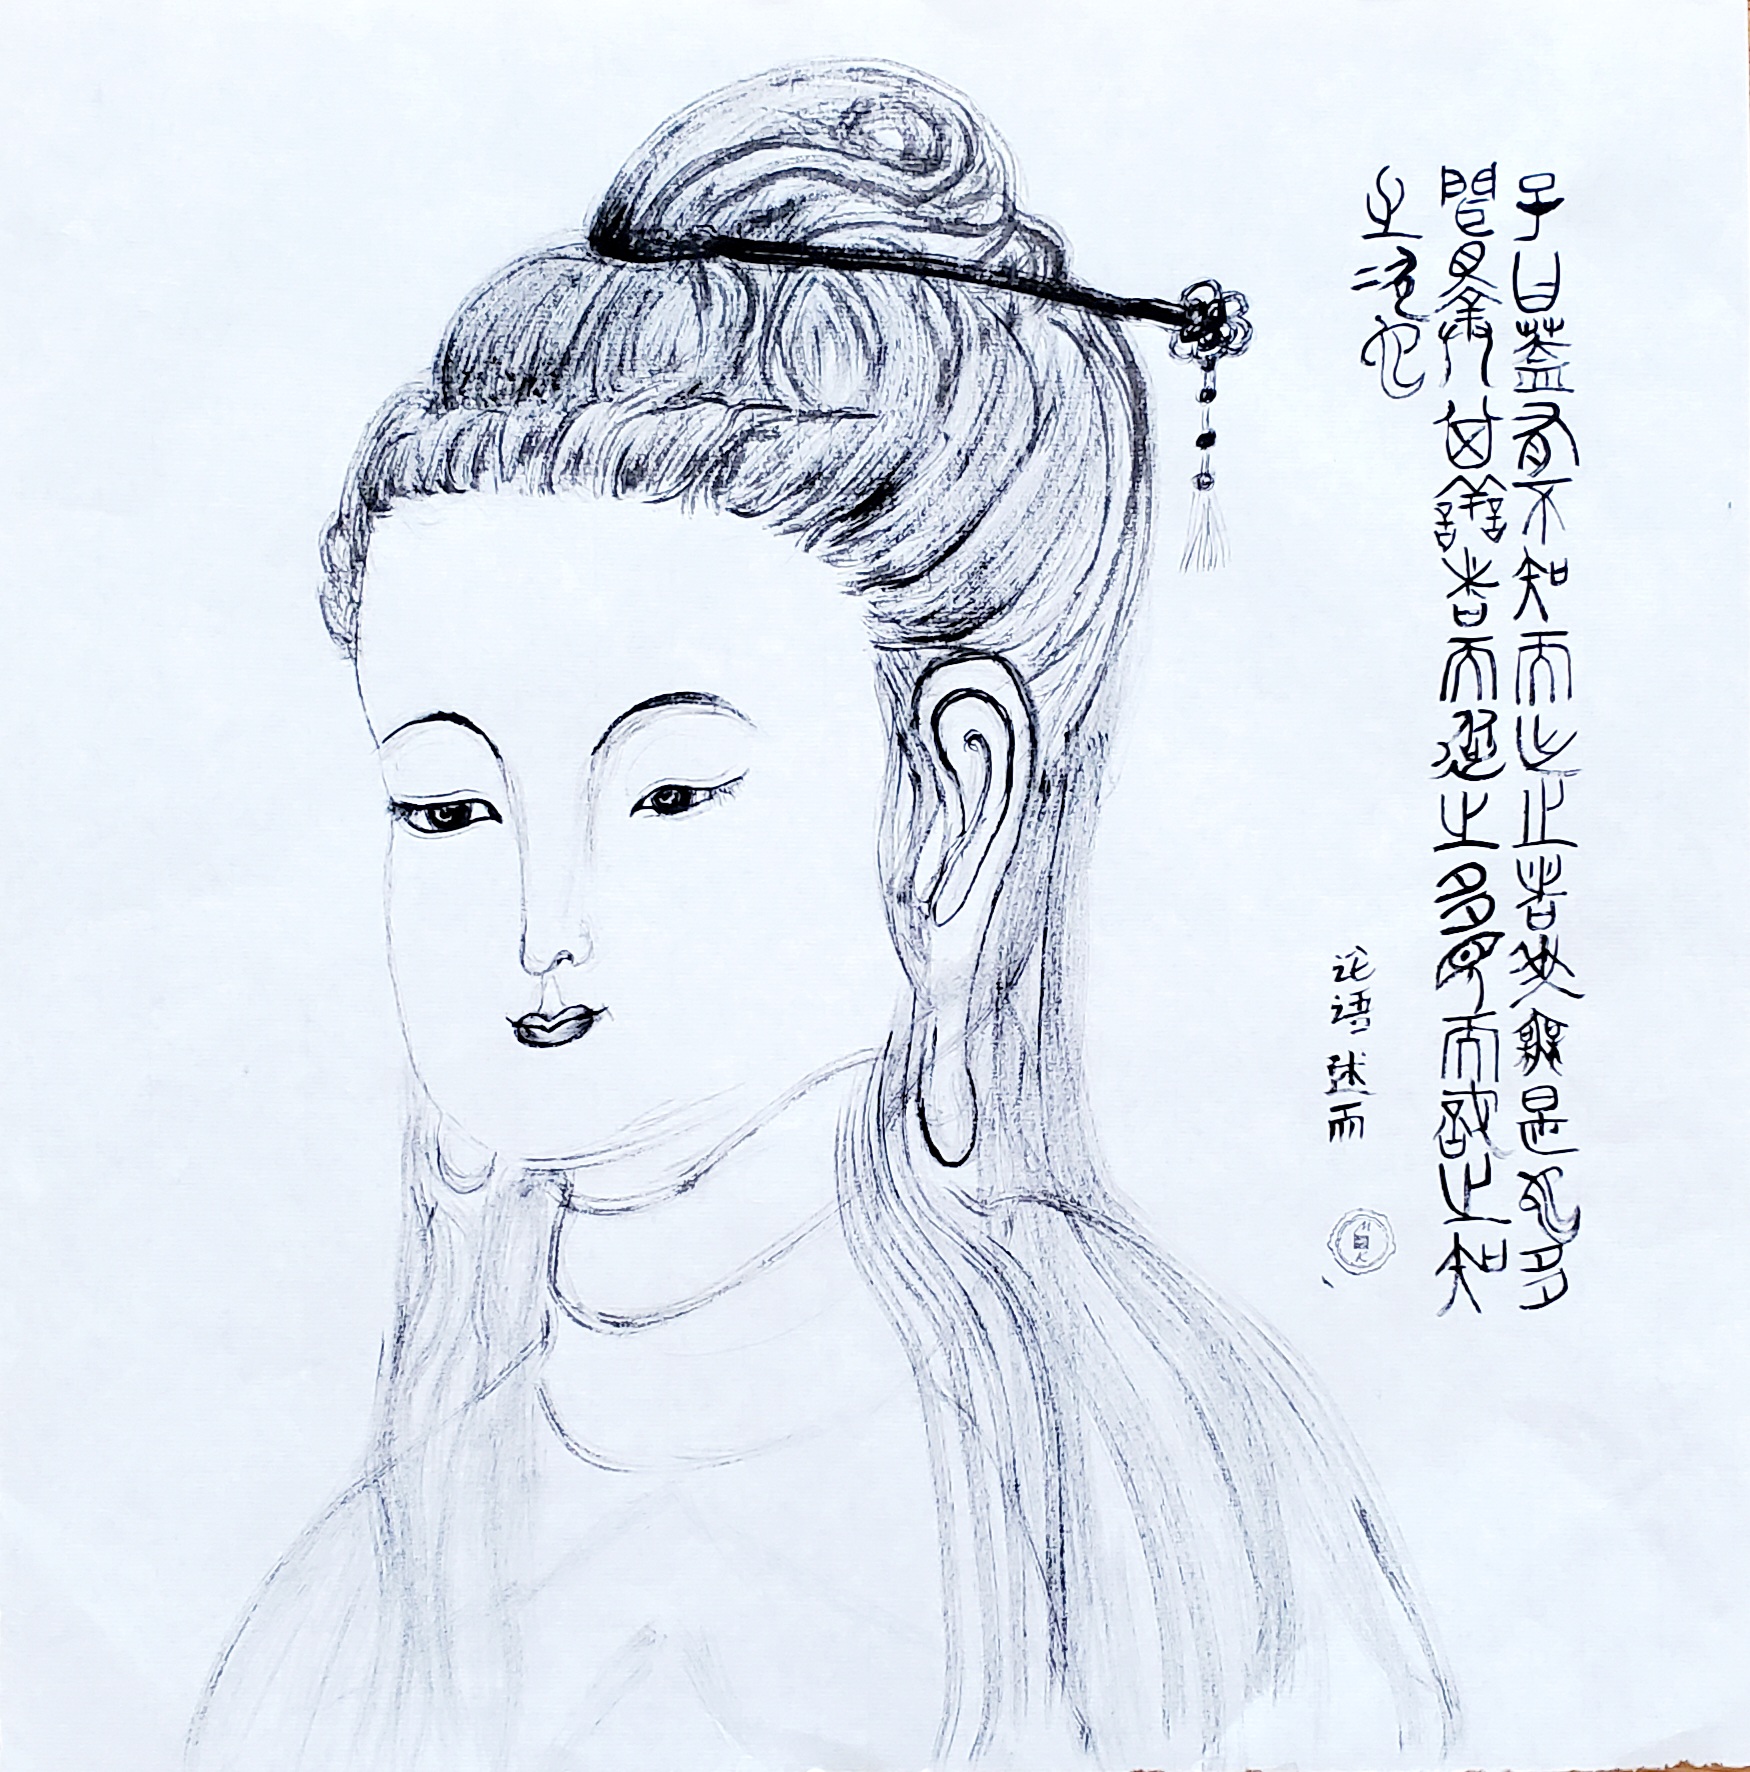 子曰蓋有不知而作之者我無是也多
聞擇其善者而從之多見而識之知
之次也
论语 述而